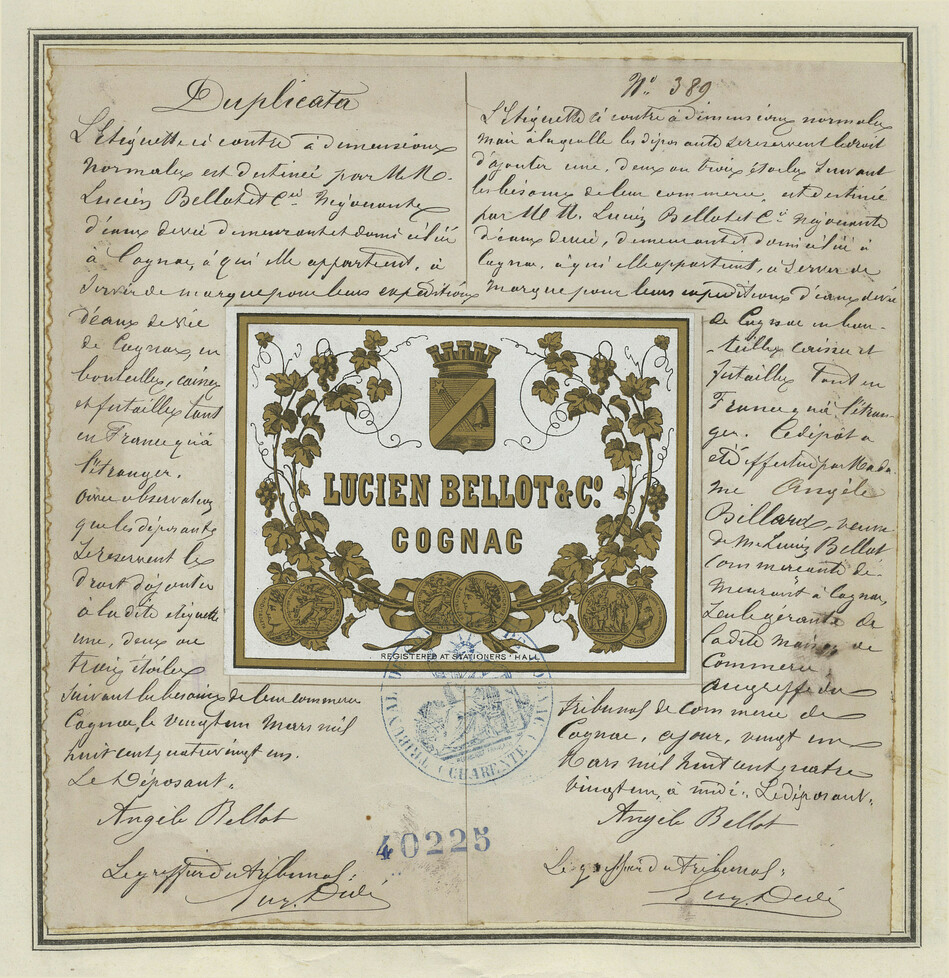 Duplicata
L'Etiquette ci contre à dimensions
normales est destinée par M.M.
Lucien Bellot et Cie Négociants
d'eaux de vie demeurant et domiciliés
à Cognac, à qui elle appartient, à
servir de marque pour leurs expéditions
d'eaux de vie
de Cognac en
bouteilles, caisses
et futailles tant
en France qu'à
l'étranger.
observation
que les déposants
se reservent le
droit d'ajouter
à la dite étiquette
une, deux ou
trois étoiles
suivant les besoins de leur commerce
Cognac, le vingt un Mars mil
huit cent quatre vingt un.
Le Déposant.
Angèle Bellot
Le greffier du tribunal.
Nº 389
L'Etiquette ci contre à dimensions normales
mais à laquelle les déposants se reservent le droit
d'ajouter une, deux ou trois étoiles suivant
les besoins de leur commerce, est destinée
par M.M. Lucien Bellot et Cº Négociants
d'eaux de vie, demeurant et domiciliés à
Cognac, à qui elle appartient, à servir de
Marque pour leurs expéditions d'eaux de vie
de Cognac en bou-
-teilles caisses et
futailles tant en
France qu'à l'étran-
ger. Ce dépôt a
été effectué par Mada
me Angèle
Billard, veuve
de Mr Lucien Bellot
commerçante de-
meurant à Cognac,
seule gérante de
la dite Maison de
Commerce
au greffe du
tribunal de commerce de
Cognac, ce jour, vingt un
Mars mil huit cent quatre
vingt un, à midi. Le déposant.
Angèle Bellot
Le greffier du tribunal.
LUCIEN BELLOT & Cº.
COGNAC
REGISTERED AT STATIONERS' HALL
TRIBUNAL DE COGNAC
(CHARENTE)
40225